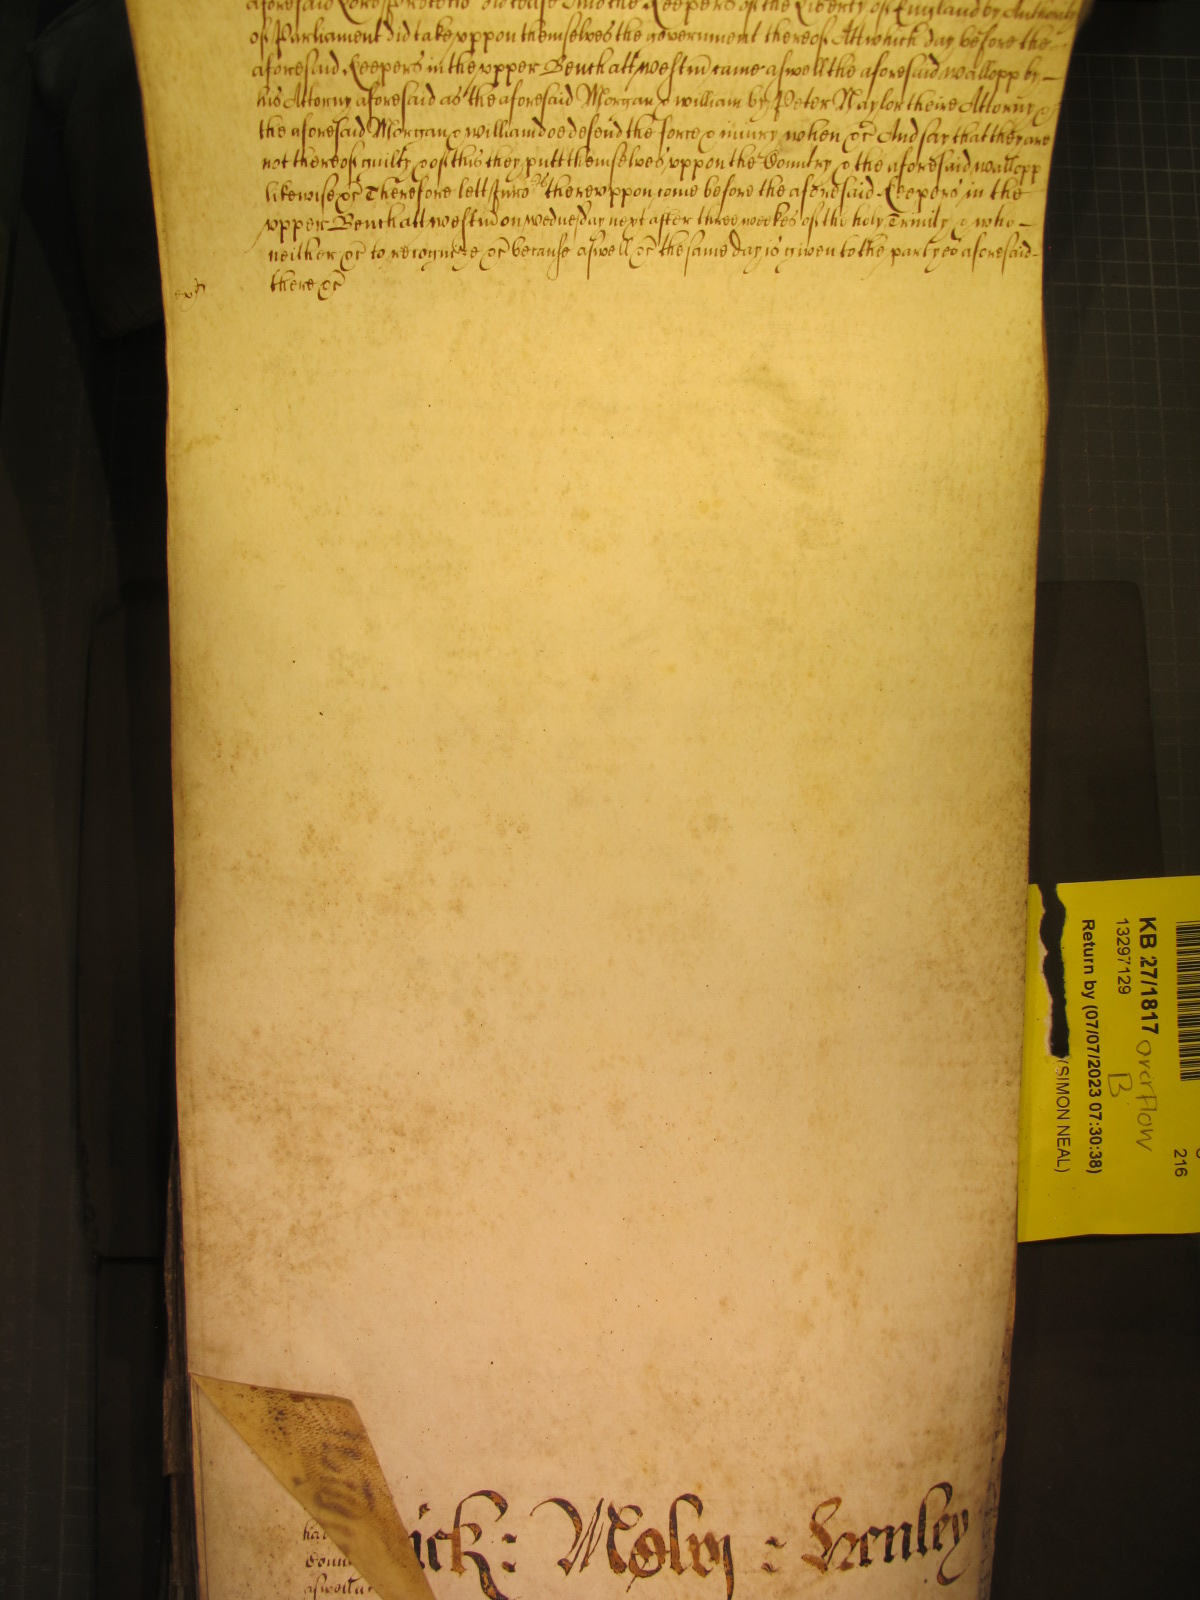 aforesaid Lord Protector did cease And the Keepers of the Liberty of England by Authority
of Parliament did take vppon themselves the government thereof Att which day before the
aforesaid Keepers in the vpper Bench att westm̄ came aswell the aforesaid wallopp by
his Attorny aforesaid as the aforesaid Morgan & william by Peter Naylor theire Attorny &
the aforesaid Morgan & william doe defend the force & iniury when &c̄ And say that they are
not thereof guilty & of this they putt themselves vppon the Country & the aforesaid wallopp
likewise &c̄ Therefore lett Juro thereuppon come before the aforesaid Keepers in the
vpper Bench att westm̄ on wednesday next after three weekes of the holy Trinity & who
neither &c̄ to recognize &c̄ because aswell &c̄ the same day is given to the partyes aforesaid
there &c̄
KB 27/1817 overflow
B
13297129
Return by (07/07/2023 07:30:38)
(SIMON NEAL)
216
ick : Molyn : Henley
aswell